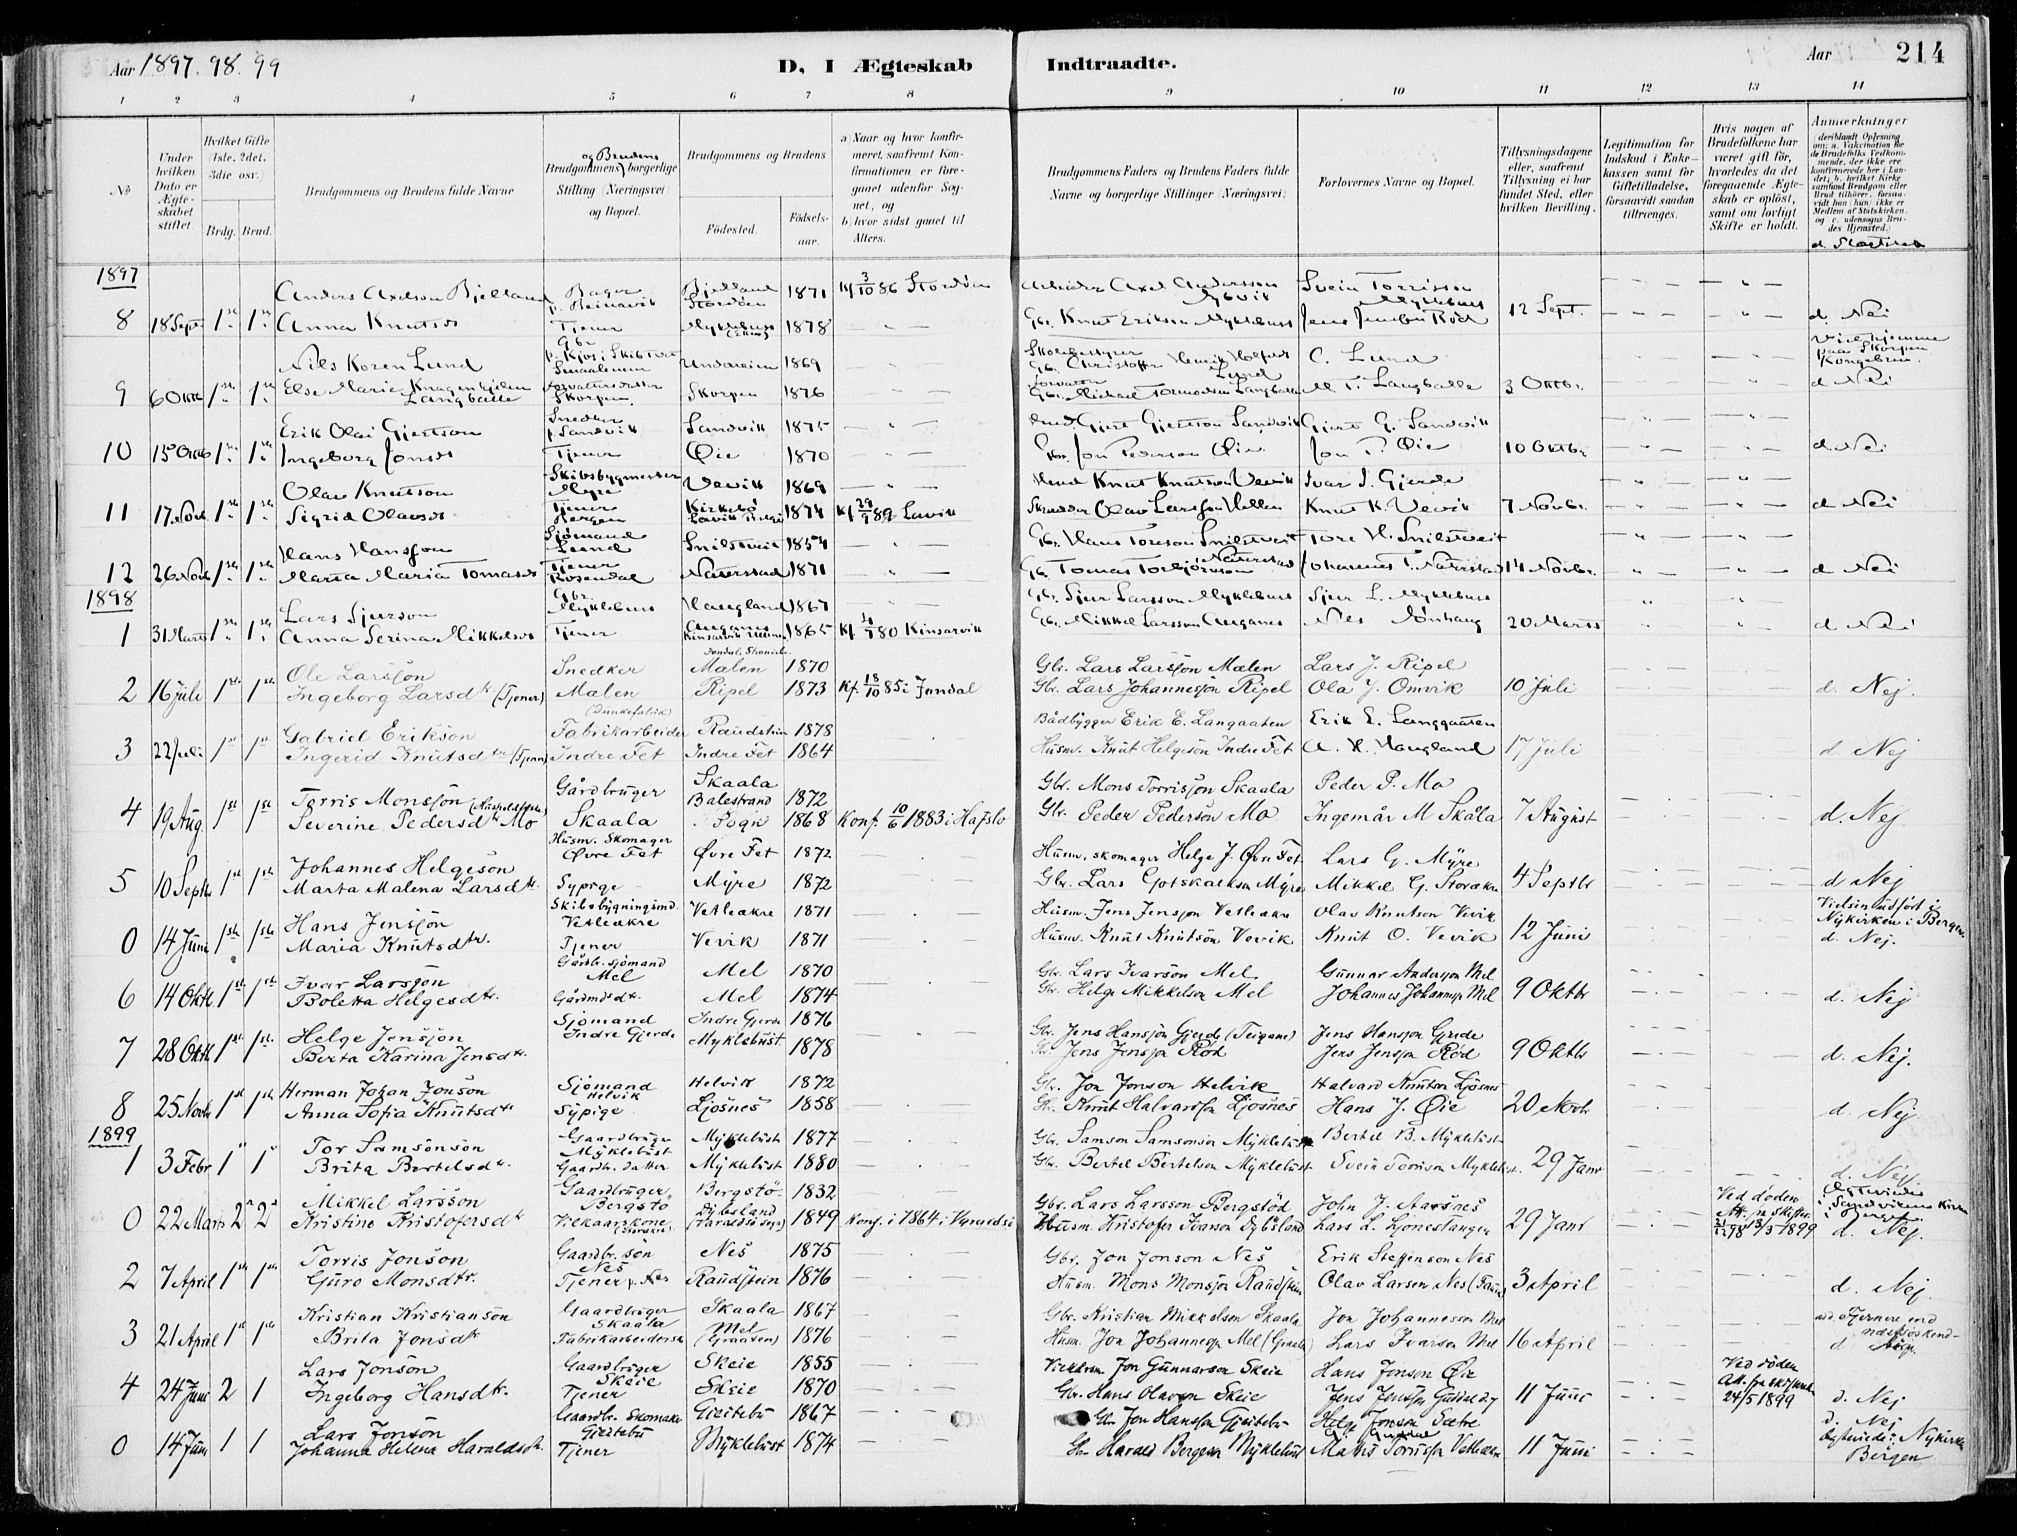 Aar 1897. 98. 99
D, I Ægteskab Indtraadte.
Aar
214
1 2 3 4 5 6 7 8 9 10 11 12 13 14
No
Under hvilken Dato er Ægteskabet stiftet.
Hvilket Gifte (1ste, 2det, 3die osv.)
Brdg. Brud.
Brudgommens og Brudens fulde Navne
Brudgommens og Brudens borgerlige Stilling (Næringsvei) og Bopæl.
Brudgommens og Brudens
Fødested. Fødselsaar.
a) Naar og hvor konfirmeret, saafremt Konfirmationen er foregaaet udenfor Sognet, og
b) hvor sidst gaaet til Alters.
Brudgommens Faders og Brudens Faders fulde Navne og borgerlige Stillinger (Næringsvei)
Forlovernes Navne og Bopæl.
Tillysningsdagene eller, saafremt Tillysning ei har fundet Sted, efter hvilken Bevilling.
Legitimation for Indskud i Enkekassen samt for Giftetilladelse, forsaavidt saadan tiltrænges.
Hvis nogen af Brudefolkene har været gift før, hvorledes da det foregaaende Ægteskab er opløst, samt om lovligt Skifte er holdt.
Anmærkninger
1897
Anders Axelson Bjelland Bager Bjelland Stordøen 1871 Kf 3/10 86 Stordøen Arbeider Axel Andersson Svein Torrisson Myklebust
8 18 Sept. 1ste 1ste Anna Knutsd Tjener Myklebust 1878 Gbr. Knut Erikson Myklebust Jens Jenson Rød 12 Sept. d. Nei
Nils Koren Lund Gbr. Undareim 1869 Christoffer Lund C. Lund
9 6 Oktb 1ste 1ste Else Marie Langballe Skorpen Skorpen 1876 Gbr. Michael Langballe M. T. Langballe 3 Oktbr. d Nei
Erik Olai Gjertson Snedker p. Sandvik Sandvik 1875 Gjert Gjertson Sandvik Gjert G. Sandvik
10 15 Oktb 1ste 1ste Ingeborg Jonsd Tjener Øie 1870 Gbr. Jon Pederson Øie Jon P. Øie 10 Oktbr. d Nei
Olav Knutson Skibsbygmester Myre Vevik 1869 Knut Knutson Vevik Ivar I. Gjerde
11 17 Novb 1ste 1ste Sigrid Olavsd Tjener Bergen Kirkebø 1874 Kf 29/9 89 Lavik Skrædder Olav Larsson Hellen Knut K. Vevik 7 Novbr. d Nei
Hans Hansson Sjømand Lund Snilstveit 1854 Gbr. Hans Toreson Snilstveit Tore H. Snilstveit
12 26 Novb 1ste 1ste Marta Maria Tomasd Tjener Rosendal Naterstad 1871 Gbr. Tomas Torbjørnson Naterstad Johannes T. Naterstad 14 Novbr. d Nei
1898
Lars Sjurson Gbr. Myklebust Haugland 1867 Gbr. Sjur Larsson Myklebust Sjur L. Myklebust
1 31 Marts 1ste 1ste Anna Serina Mikkelsd Tjener Auganes 1865 Kf 4/7 80 Kinsarvik Gbr. Mikkel Larsson Auganes Nils Tønhaug 20 Marts d Nei
Ole Larsson Snedker Mælen 1870 Gbr. Lars Larsson Mælen Lars J. Ripel
2 16 juli 1ste 1ste Ingeborg Larsdtr (Tjener) Mælen Ripel 1873 Kf. 18/10 85 i Jondal Gbr. Lars Johannesson Ripel Ola J. Omvik 10 Juli d. Nej.
Gabriel Erikson Fabrikarbeider Raudstein 1878 Bådbygger Erik E. Langaaten Erik E. Langgaaten
3 22 juli 1ste 1ste Ingerid Knutsdtr (Tjener) Indre Fet Indre Fet 1864 Husm. Knut Helgeson Indre Fet A. H. Haugland 17 juli d Nej
Torris Monsson Gårdbruger Skaala 1872 Gbr. Mons Torrisson Skaala Peder P. Mo
4 19 Aug. 1st 1st Severine Pedersdtr Mo Skaala Balestrand Sogn 1868 Konf. 10/6 1883 i Hafslo Gbr. Peder Pederson Mo Ingemår M Skåla 7 August d. Nej
Johannes Helgeson Husm. Skomager Øvre Fet Øvre Fet 1872 Husm. skomager Helge J. Øvre Fet Lars G. Myre
5 10 Septbr 1st 1st Marta Malena Larsdtr. Sypige Myre 1872 Gbr. Lars Gotskalkson Myre Mikkel G. Storækre 4 Septbr d Nej
Hans Jensson Skibsbygningsmd. Vetleækre Vetleækre 1871 Husm. Jens Jensson Vetleækre Olav Knutson Vevik Vielsen udført i Nykirken i Bergen.
0 14 Juni 1ste 1ste Maria Knutsdtr. Tjener Vevik 1871 Husm. Knut Knutson Vevik Knut O. Vevik 12 Juni d. Nej.
Ivar Larsson Gårdbr. sjømand Mel Mel 1870 Gbr. Lars Ivarson Mel Gunnar Andersson Mel
6 14 Oktb. 1ste 1ste Boletta Helgesdtr. Gårdmdsdt. Mel 1874 Gbr. Helge Mikkelson Mel Johannes Johanness. Mel 9 Oktbr d. Nej
Helge Jensson Sjømand Indre Gjerde Indre Gjerde 1876 Gbr. Jens Hansson Gjerde (Teigen) Jens Hansson Gjerde
7 28 Oktb 1st 1ste Berta Karina Jensdtr. Myklebust 1878 Gbr. Jens Jensson Rød Jens Jensson Rød 9 Oktbr d. Nej.
Herman Johan Jonson Sjømand Helvik Helvik 1872 Gbr. Jon Jonson Helvik Halvard Knutson Ljosnes
8 25 Novb 1st 1ste Anna Sofia Knutsdtr Sypige Ljosnes 1858 Gbr. Knut Halvardson Ljosnes Hans J. Øie 20 Novbr d. Nej
1899
Tor Samsonson Gaardbruger Myklebust Myklebust 1877 Gbr. Samson Samsonson Myklebust Bertel B. Myklebust
1 3 Febr 1 1 Brita Bertelsdtr. Gaardbr. datter Myklebust 1880 Gbr. Bertel Bertelson Myklebust Svein Torrison Myklebust. 29 Janr d. Nej.
Mikkel Larsson Gaardbruger Bergstø Bergstø 1832 Gbr. Lars Larsson Bergstød John J. Aarsnes Ved døden
0 22 Marts 2 2 Kristine Kristofersdtr 1849 Konf. i 1864 i Kvardsi Husm. Kristofer Ivarson Lars L. Ljonestangen 29 Janr 13/3 1899 d. Nej.
Torris Jonson Gaardbr. søn Nes Nes 1875 Gbr. Jon Jonson Nes Erik Steffenson Nes
2 7 April 1ste 1ste Guro Monsdtr. Tjener p. Nes Raudstein 1876 Husm. Mons Monsson Raudstein Olav Larsen Nes 3 April d. Nej
Kristian Kristianson Gaardbruger Skaala Skaala 1867 Gbr. Kristian Mikkelson Skaala Jon Johannesson Mel
3 21 April 1st 1ste Brita Jonsdtr Fabrikarbeiderske Mel (Graaten) 1876 Husm. Jon Johannesson Mel Lars Ivarson Mel 16 April
Lars Jonson Gaardbruger Skeie Skeie 1855 Jon Gunnarson Skeie Hans Jonson Øie Ved døden
4 24 Juni 2 1 Ingeborg Hansdtr. Tjener Skeie 1870 Gbr. Hans Olavson Skeie 11 Juni 24/5 1899 d. Nej
Lars Jonson Gaardbr. Skomaker Gieitebø Gieitebø 1867 Gbr Jon Hansson Gjeitebø Helge Jonson Sætre d. Nej
0 14 Juni 1 1 Johanna Helena Haraldsdtr. Tjener Myklebust 1874 Gbr Harald Bergeson Myklebust Mats Torrisson Vetleækre 11 Juni Nykirken Bergen